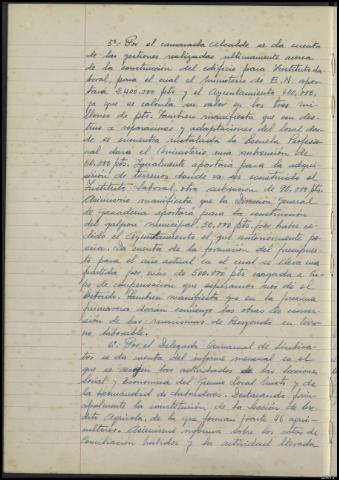 5º.- Por el camarada Alcalde se da cuenta
de las gestiones realizadas ultimamente acerca
de la construcción del edificio para Instituto La-
boral, para el cual el Ministerio de E.N. apor-
tará 2.400.000 pts y el Ayuntamiento 600.000,
ya que se calcula su valor en los tres mi-
llones de pts. Tambien manifiesta que con des-
tino a reparaciones y adaptaciones del local don-
de se encuentra instalada la Escuela Profesio-
nal dará el Ministerio una subvención de
60.000 pts. Igualmente aportaria para la adqui-
sición de terrenos donde va ser construido el
Instituto Laboral, otra subvencion de 90.000 pts.
Asimismo manifiesta que la Dirección General
de Ganaderia aportara para la construcción
del municipal, 50.000 pts, por haber ce-
dido el Ayuntamiento el que anteriormente po-
seia. Da cuenta de la formación del presupues-
to para el año actual en el cual se lleva una
partida por más de 500.000 pts cargada a cu-
po de compensación que esperamos nos de el
Estado. Tambien manifiesta que en la proxima
primavera darán comienzo las obras de conver-
sión de las de en terre-
no laborable.
6º.- Por el Delegado Comarcal de Sindica-
tos se da cuenta del informe mensual en el
que se recogen las actividades de las Secciones
Social y Economica del Gremio local Mixto y de
la Hermandad de Labradores. Destacando prin-
cipalmente la constitución, de la Sección de Cre-
dito Agricola, de la que forman parte 46 agri-
cultores. Asimismo informa sobre los actos de
Conciliación habidos y la actividad llevada